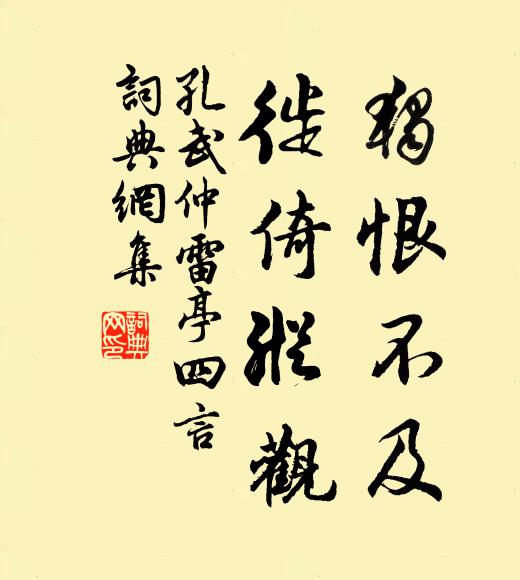 獨恨不及
徙倚縱觀
孔武仲雷亭四言
詞典網集